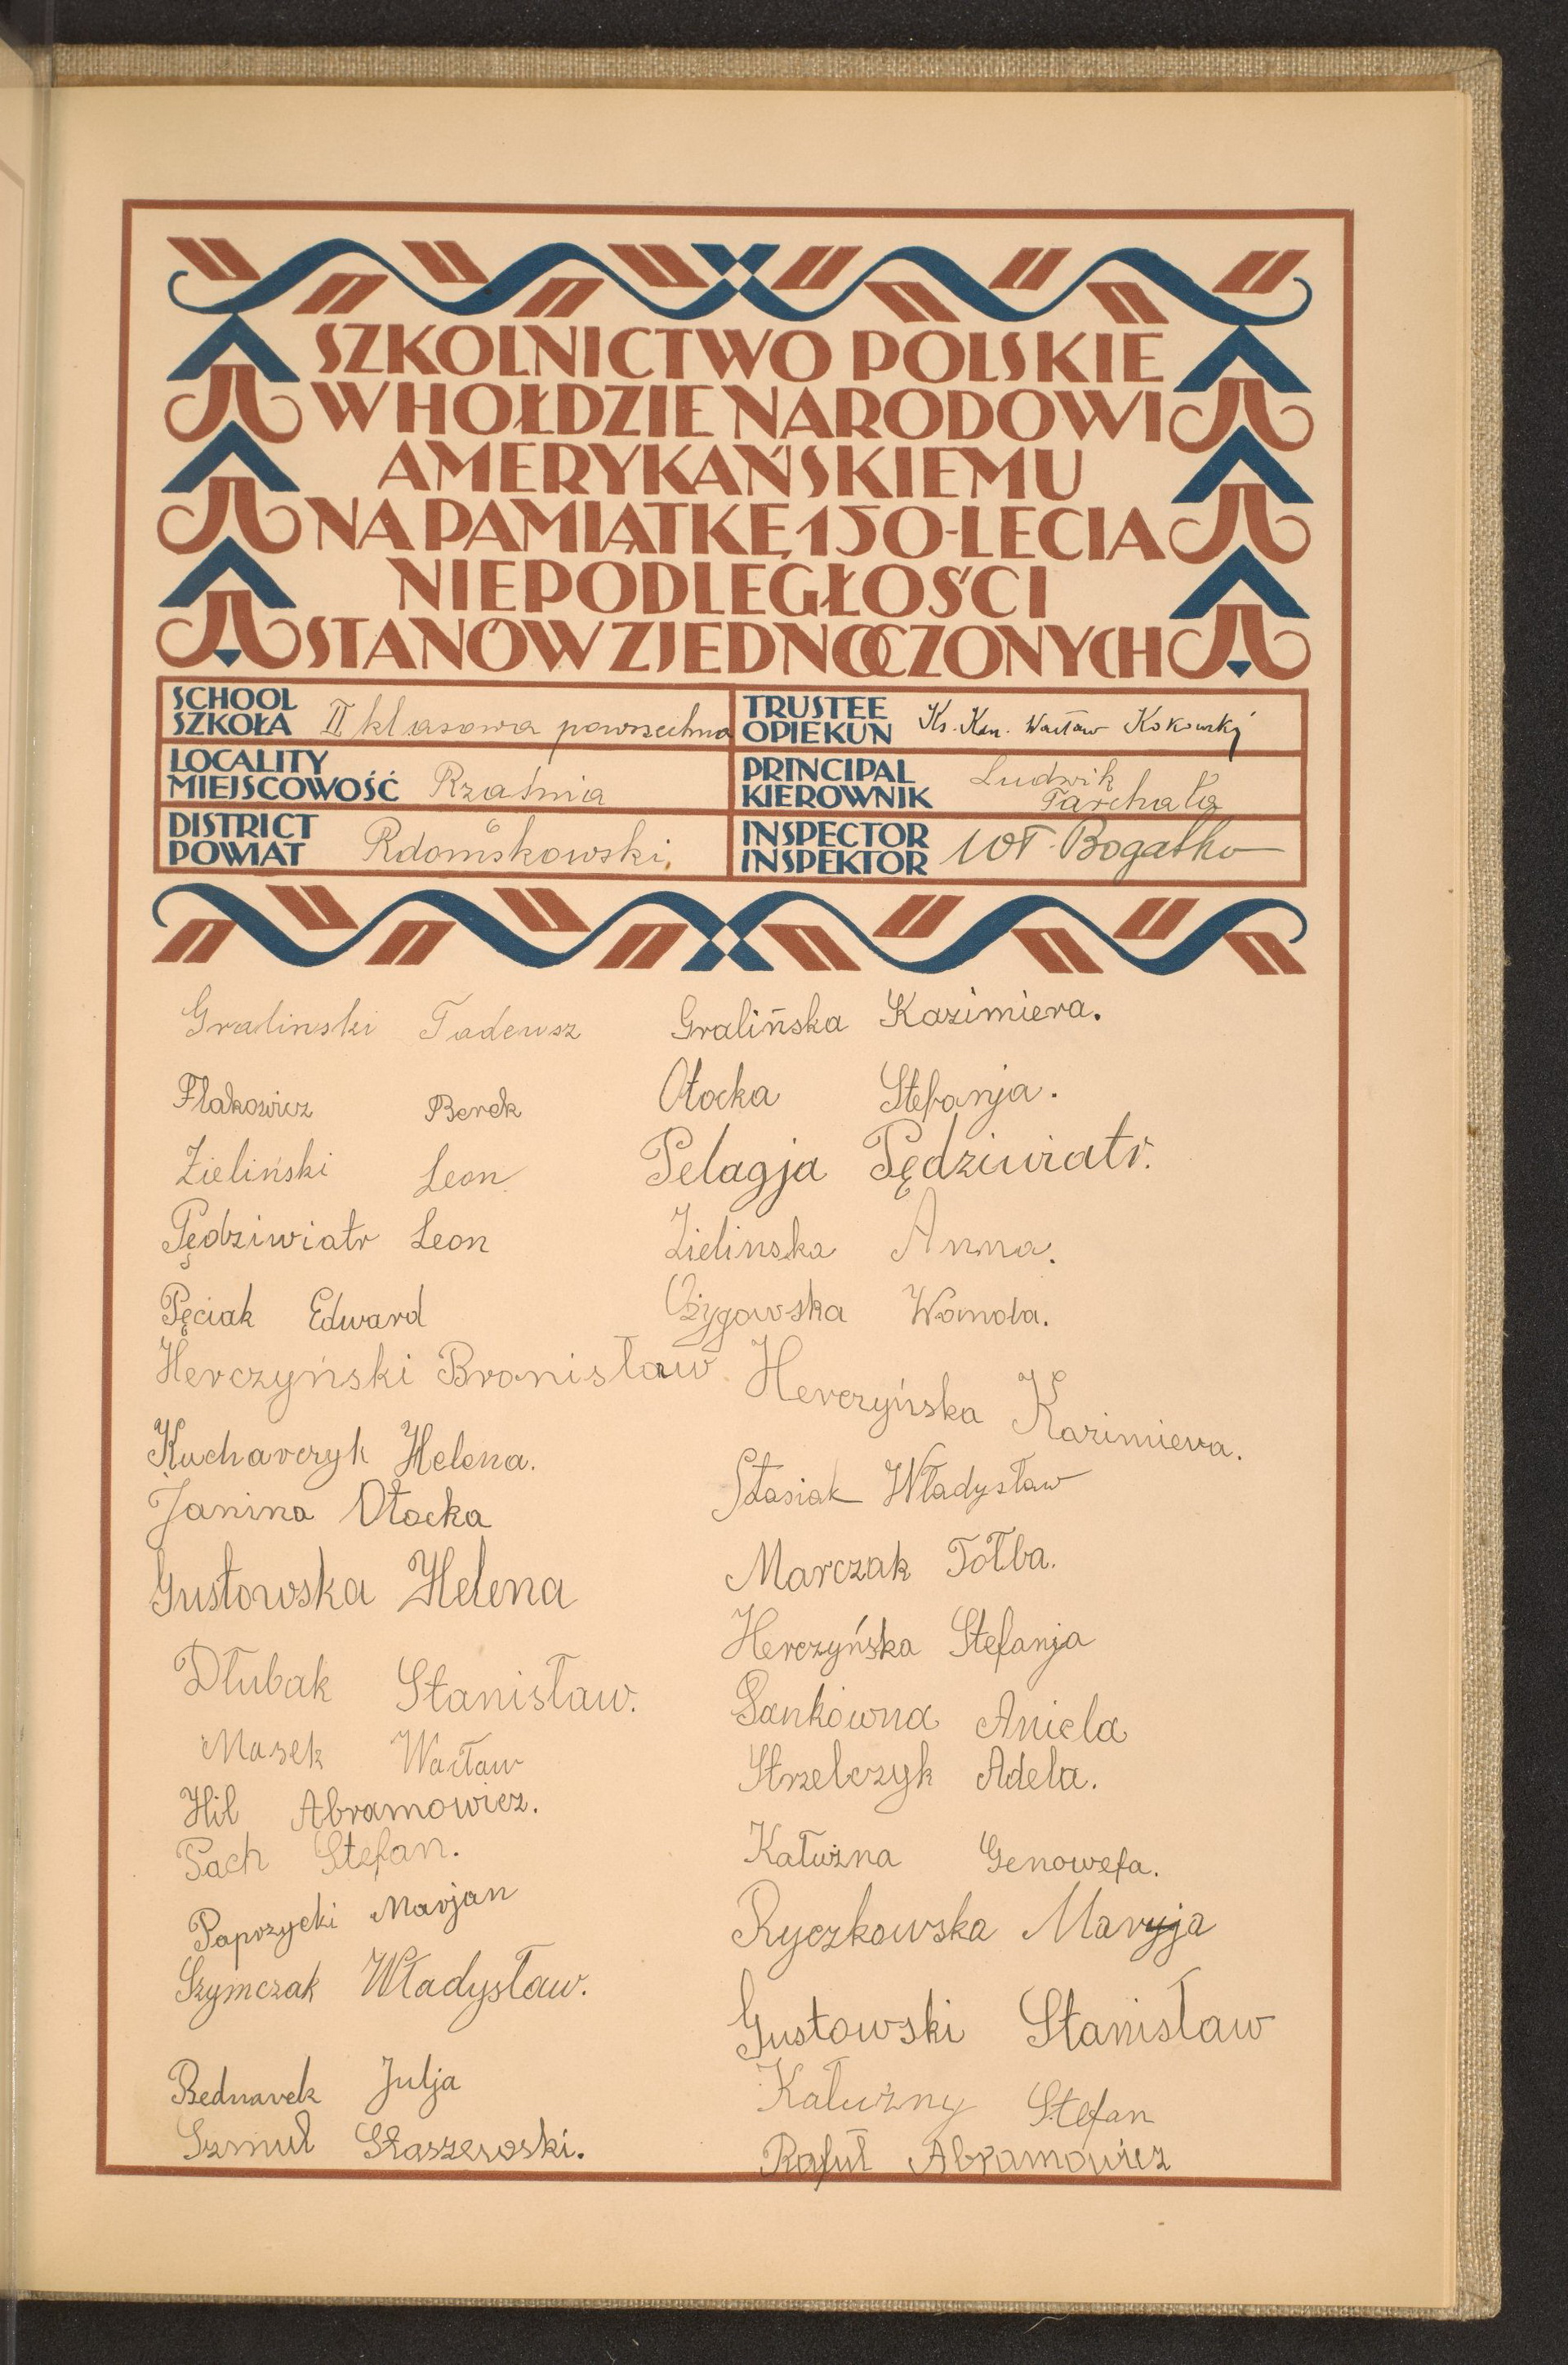 SZKOLNICTWO POLSKIE
W HOŁDZIE NARODOWI
AMERYKAŃSKIEMU
NA PAMIĄTKĘ 150-LECIA
NIEPODLEGŁOŚCI
STANÓW ZJEDNOCZONYCH
SCHOOL
SZKOŁA II klasowa powszechna
TRUSTEE
OPIEKUN Ks. Kan. Wacław Kokowski
LOCALITY
MIEJSCOWOŚĆ
PRINCIPAL
KIEROWNIK Ludwik
Tarchała
DISTRICT
POWIAT Rdomskowski
INSPECTOR
INSPEKTOR Wł. Bogatko
Gralinski Tadeusz
Flakowicz Berek
Zieliński Leon
Pędziwiatr Leon
Pęciak Edward
Herczyński Bronisław
Kucharczyk Helena.
Janina Otocka
Gustowska Helena
Dłubak Stanisław.
Masek Wacław
Hil Abramowicz.
Pach Stefan.
Paprzycki Marjan
Szymczak Władysław.
Bednarek Julja
Szmul Staszewski.
Gralińska Kazimiera.
Otocka Stefanja.
Pelagja Pędziwiatr.
Zielinska Anna.
Ożygowska Wanda.
Herczyńska Kazimiera.
Stasiak Władysław
Marczak Tołba.
Herczyńska Stefanja
Sankówna Aniela
Strzelczyk Adela.
Kałużna Genowefa.
Ryczkowska Maryja
Gustowski Stanisław
Kałużny Stefan
Rafuł Abramowicz